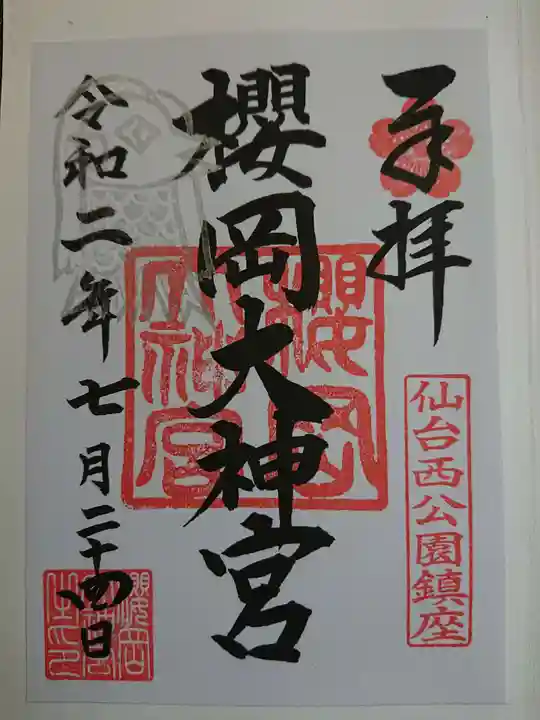 奉拝
仙台西公園鎮座
櫻岡大神宮
櫻岡大神宮
令和二年七月二十四日